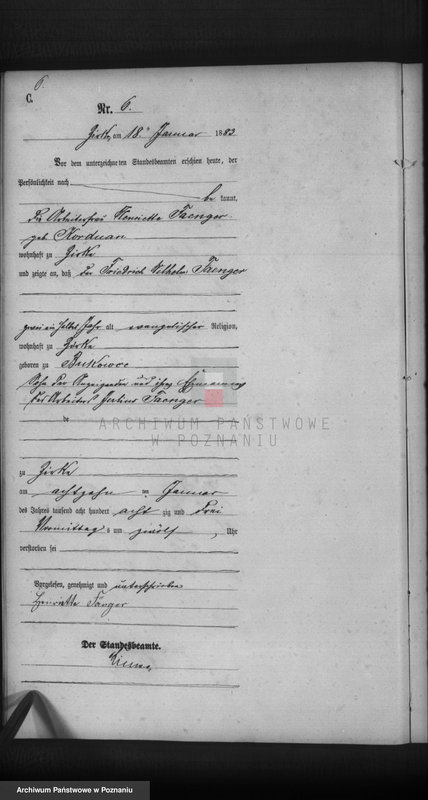 6.
C.
Nr. 6.
Zirke, am 18. Januar 1883.
Vor dem unterzeichneten Standesbeamten erschien heute, der
Persönlichkeit nach
be kannt,
die Arbeiterfrau Henriette Faenger
geb. Korduan
wohnhaft zu Zirke
und zeigte an, daß der Friedrich Wilhelm Faenger
zwei ein halbes Jahr alt evangelischer Religion,
wohnhaft zu Zirke
geboren zu Bukowce
Sohn der Anzeigenden und ihres Ehemannes
des Arbeiters Julius Faenger
zu Zirke
am achtzehn ten Januar
des Jahres tausend acht hundert acht zig und drei
Vormittag s um zwölf Uhr
verstorben sei
Vorgelesen, genehmigt und unterschrieben
Henriette Fänger
Der Standesbeamte.
ARCHIWUM PAŃSTWOWE
W POZNANIU
Archiwum Państwowe w Poznaniu